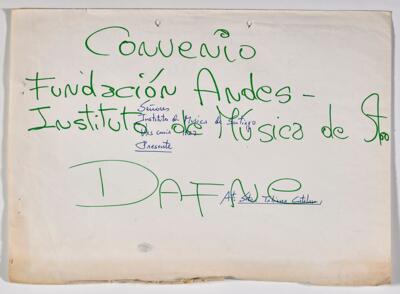 Convenio
Fundación Andes -
Señores
Instituto de Música de Santiago
Instituto de Música de Sto
Presente
DAFNE
At: Sra